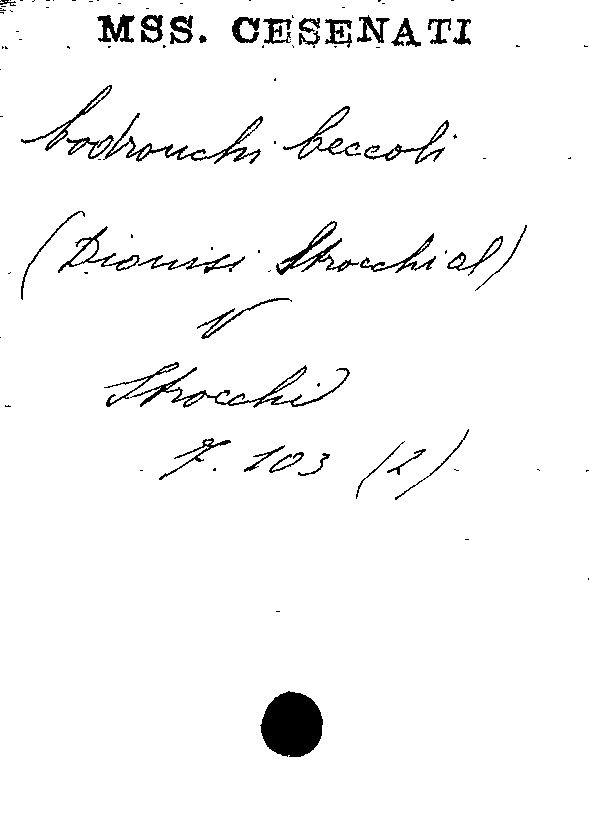 MSS. CESENATI
Codronchi Ceccoli
(Dionisi Strocchi al)
V
Strocchi
F. 103 (2)